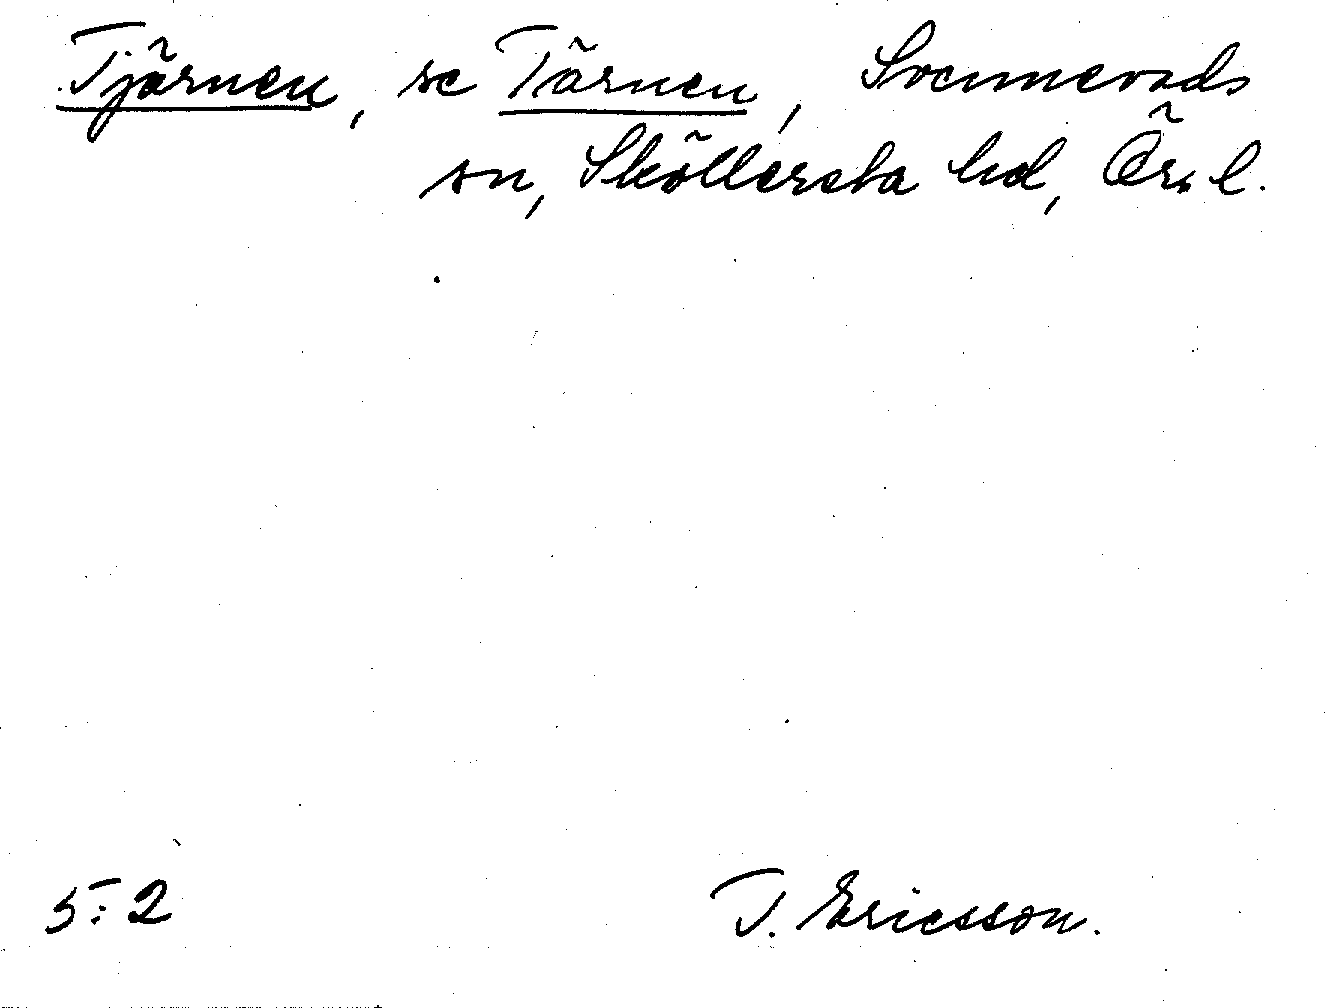 Tjärnen, se Tärnen, Svennevads
sn, Sköllersta hd, Ör. l.
5:2
T. Ericsson.